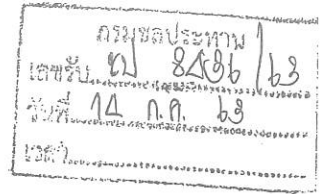 กรมชลประทาน
เลขรับ ชป /63
วันที่ 14 ก.ค. 63
เวลา